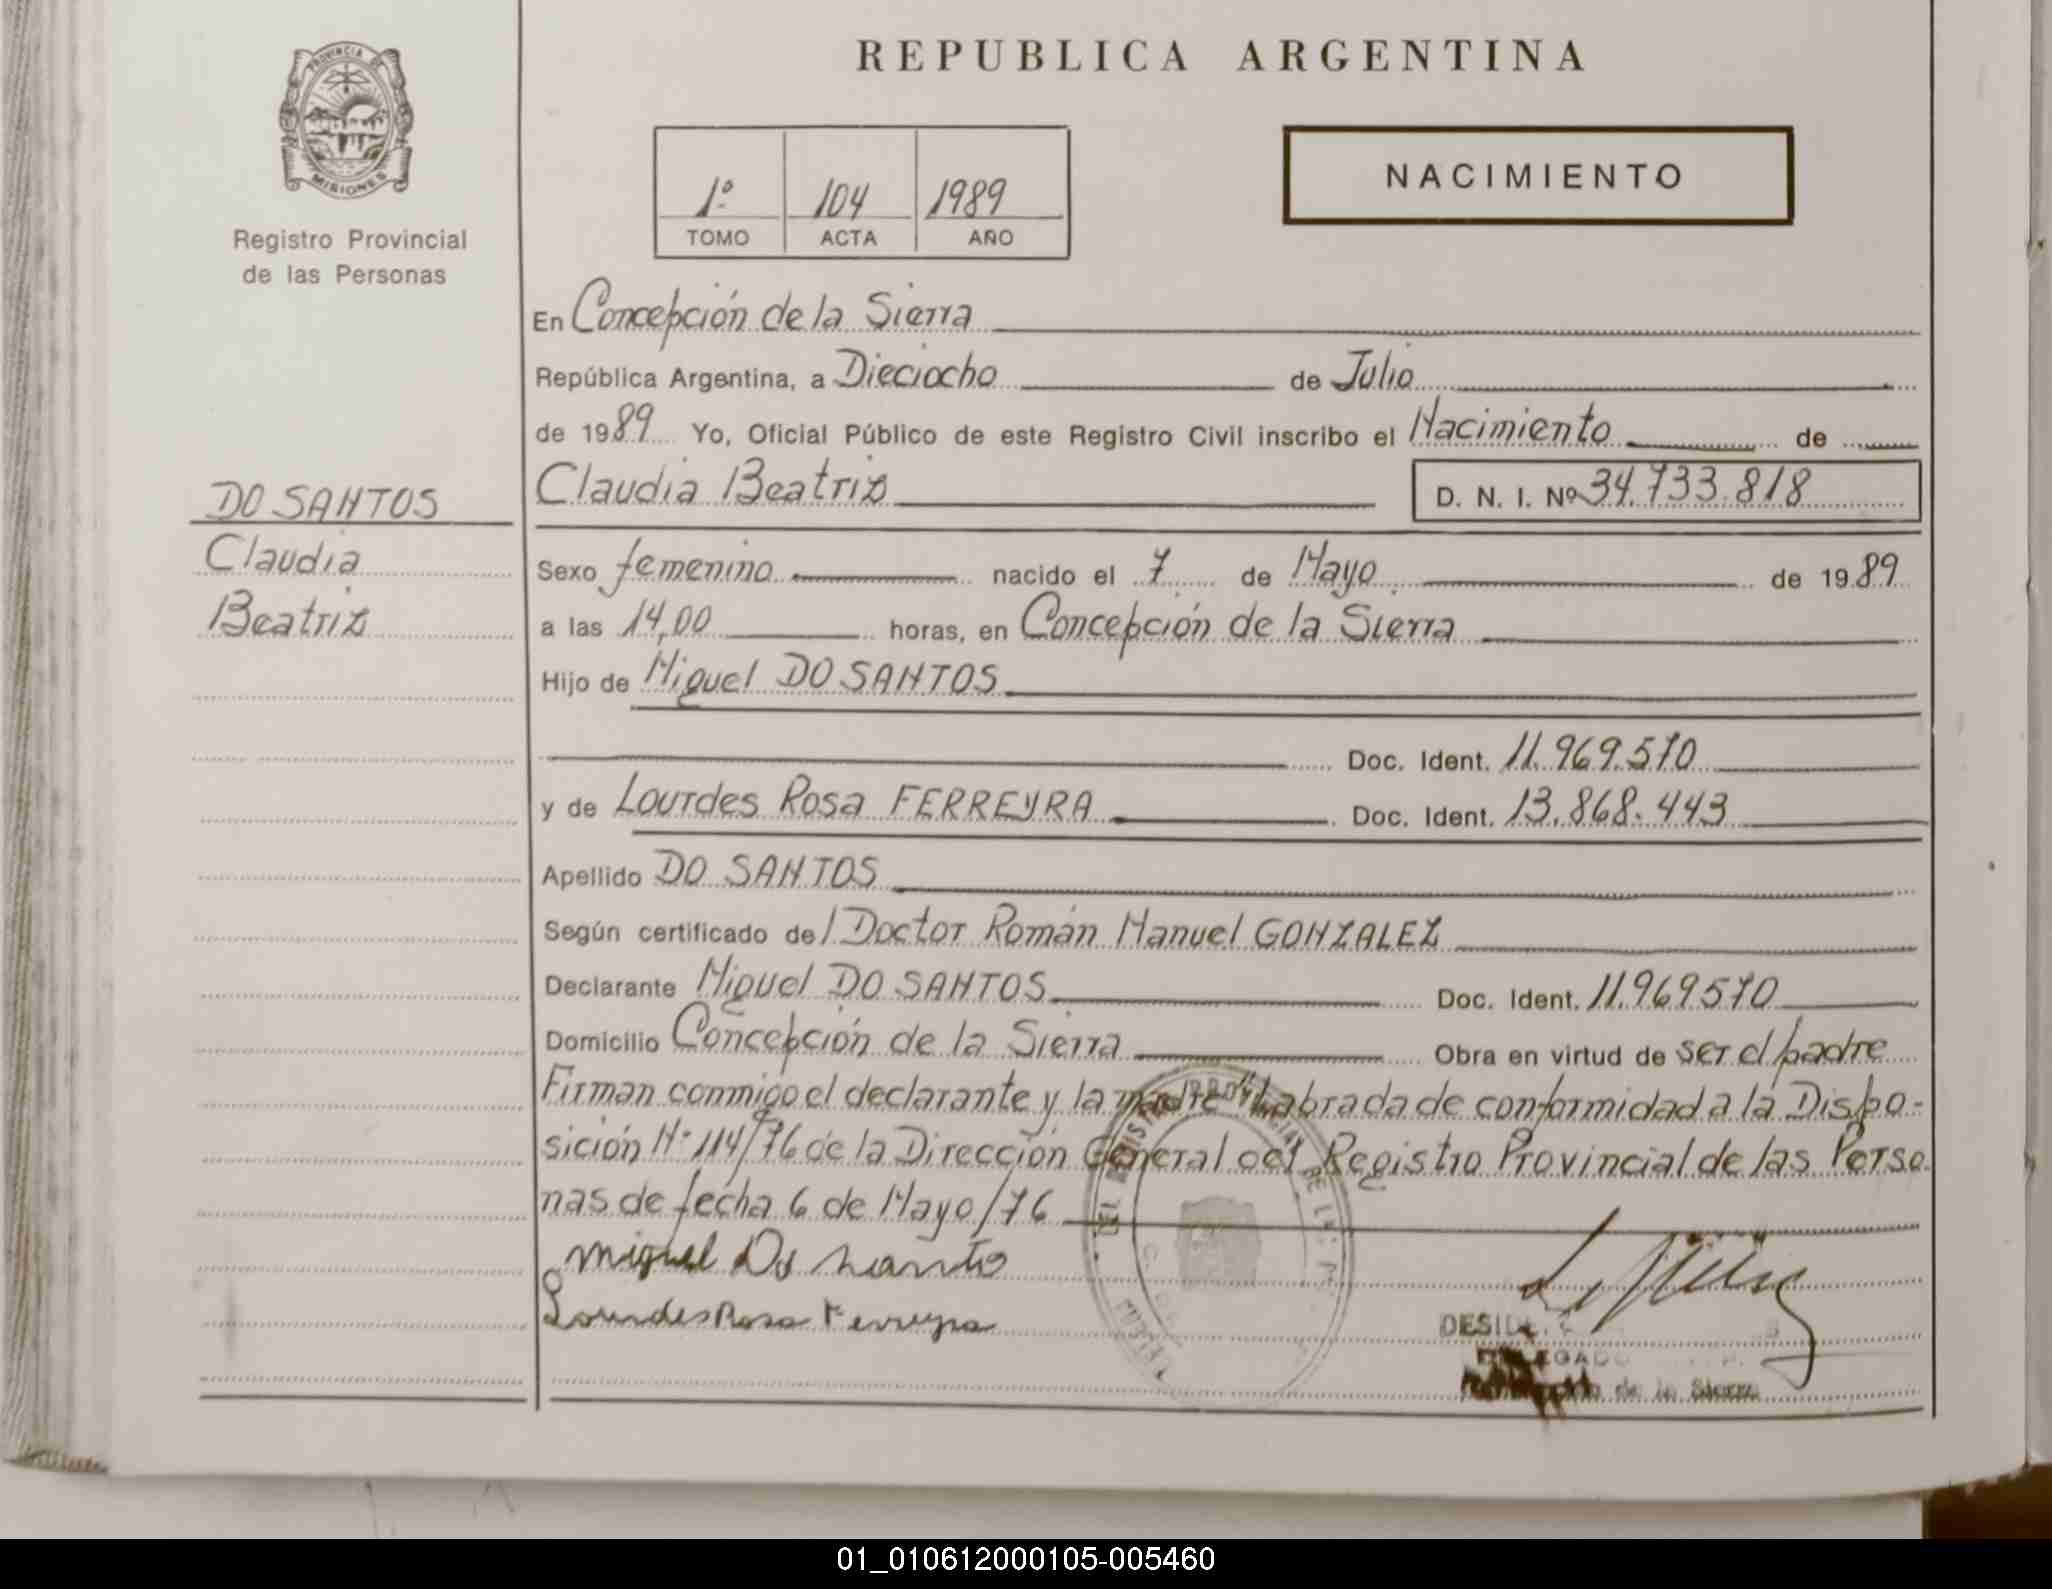 PROVINCIA DE
MISIONES
Registro Provincial
de las Personas
REPUBLICA ARGENTINA
1º 104 1989
TOMO ACTA AÑO
NACIMIENTO
En Concepción de la Sierra
República Argentina, a Dieciocho de Julio
de 1989 Yo, Oficial Público de este Registro Civil inscribo el Nacimiento de
Claudia Beatriz D. N. I. Nº 34.733.818
DO SANTOS
Claudia
Beatriz
Sexo femenino nacido el 7 de Mayo de 1989
a las 14,00 horas, en Concepción de la Sierra
Hijo de Miguel DO SANTOS
Doc. Ident. 11.969.570
y de Lourdes Rosa FERREYRA Doc. Ident. 13.868.443
Apellido DO SANTOS
Según certificado del Doctor Román Manuel GONZALEZ
Declarante Miguel DO SANTOS Doc. Ident. 11.969570
Domicilio Concepción de la Sierra Obra en virtud de ser el padre
Firman conmigo el declarante y la madre "Labrada de conformidad a la Dispo-
sición Nº 114/76 de la Dirección General del Registro Provincial de las Perso-
nas de fecha 6 de Mayo/76
Miguel Do Santo
Lourdes Rosa Ferreyra
de la Sierra
01_010612000105-005460